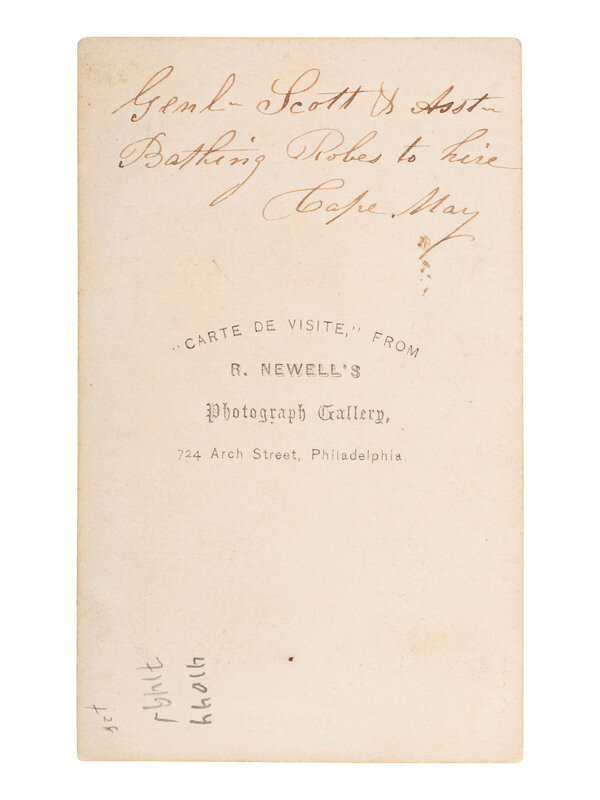 Genl- Scott & Asst-
Bathing Robes to hire
Cape May
"CARTE DE VISITE," FROM
R. NEWELL'S
Photograph Gallery,
724 Arch Street, Philadelphia.